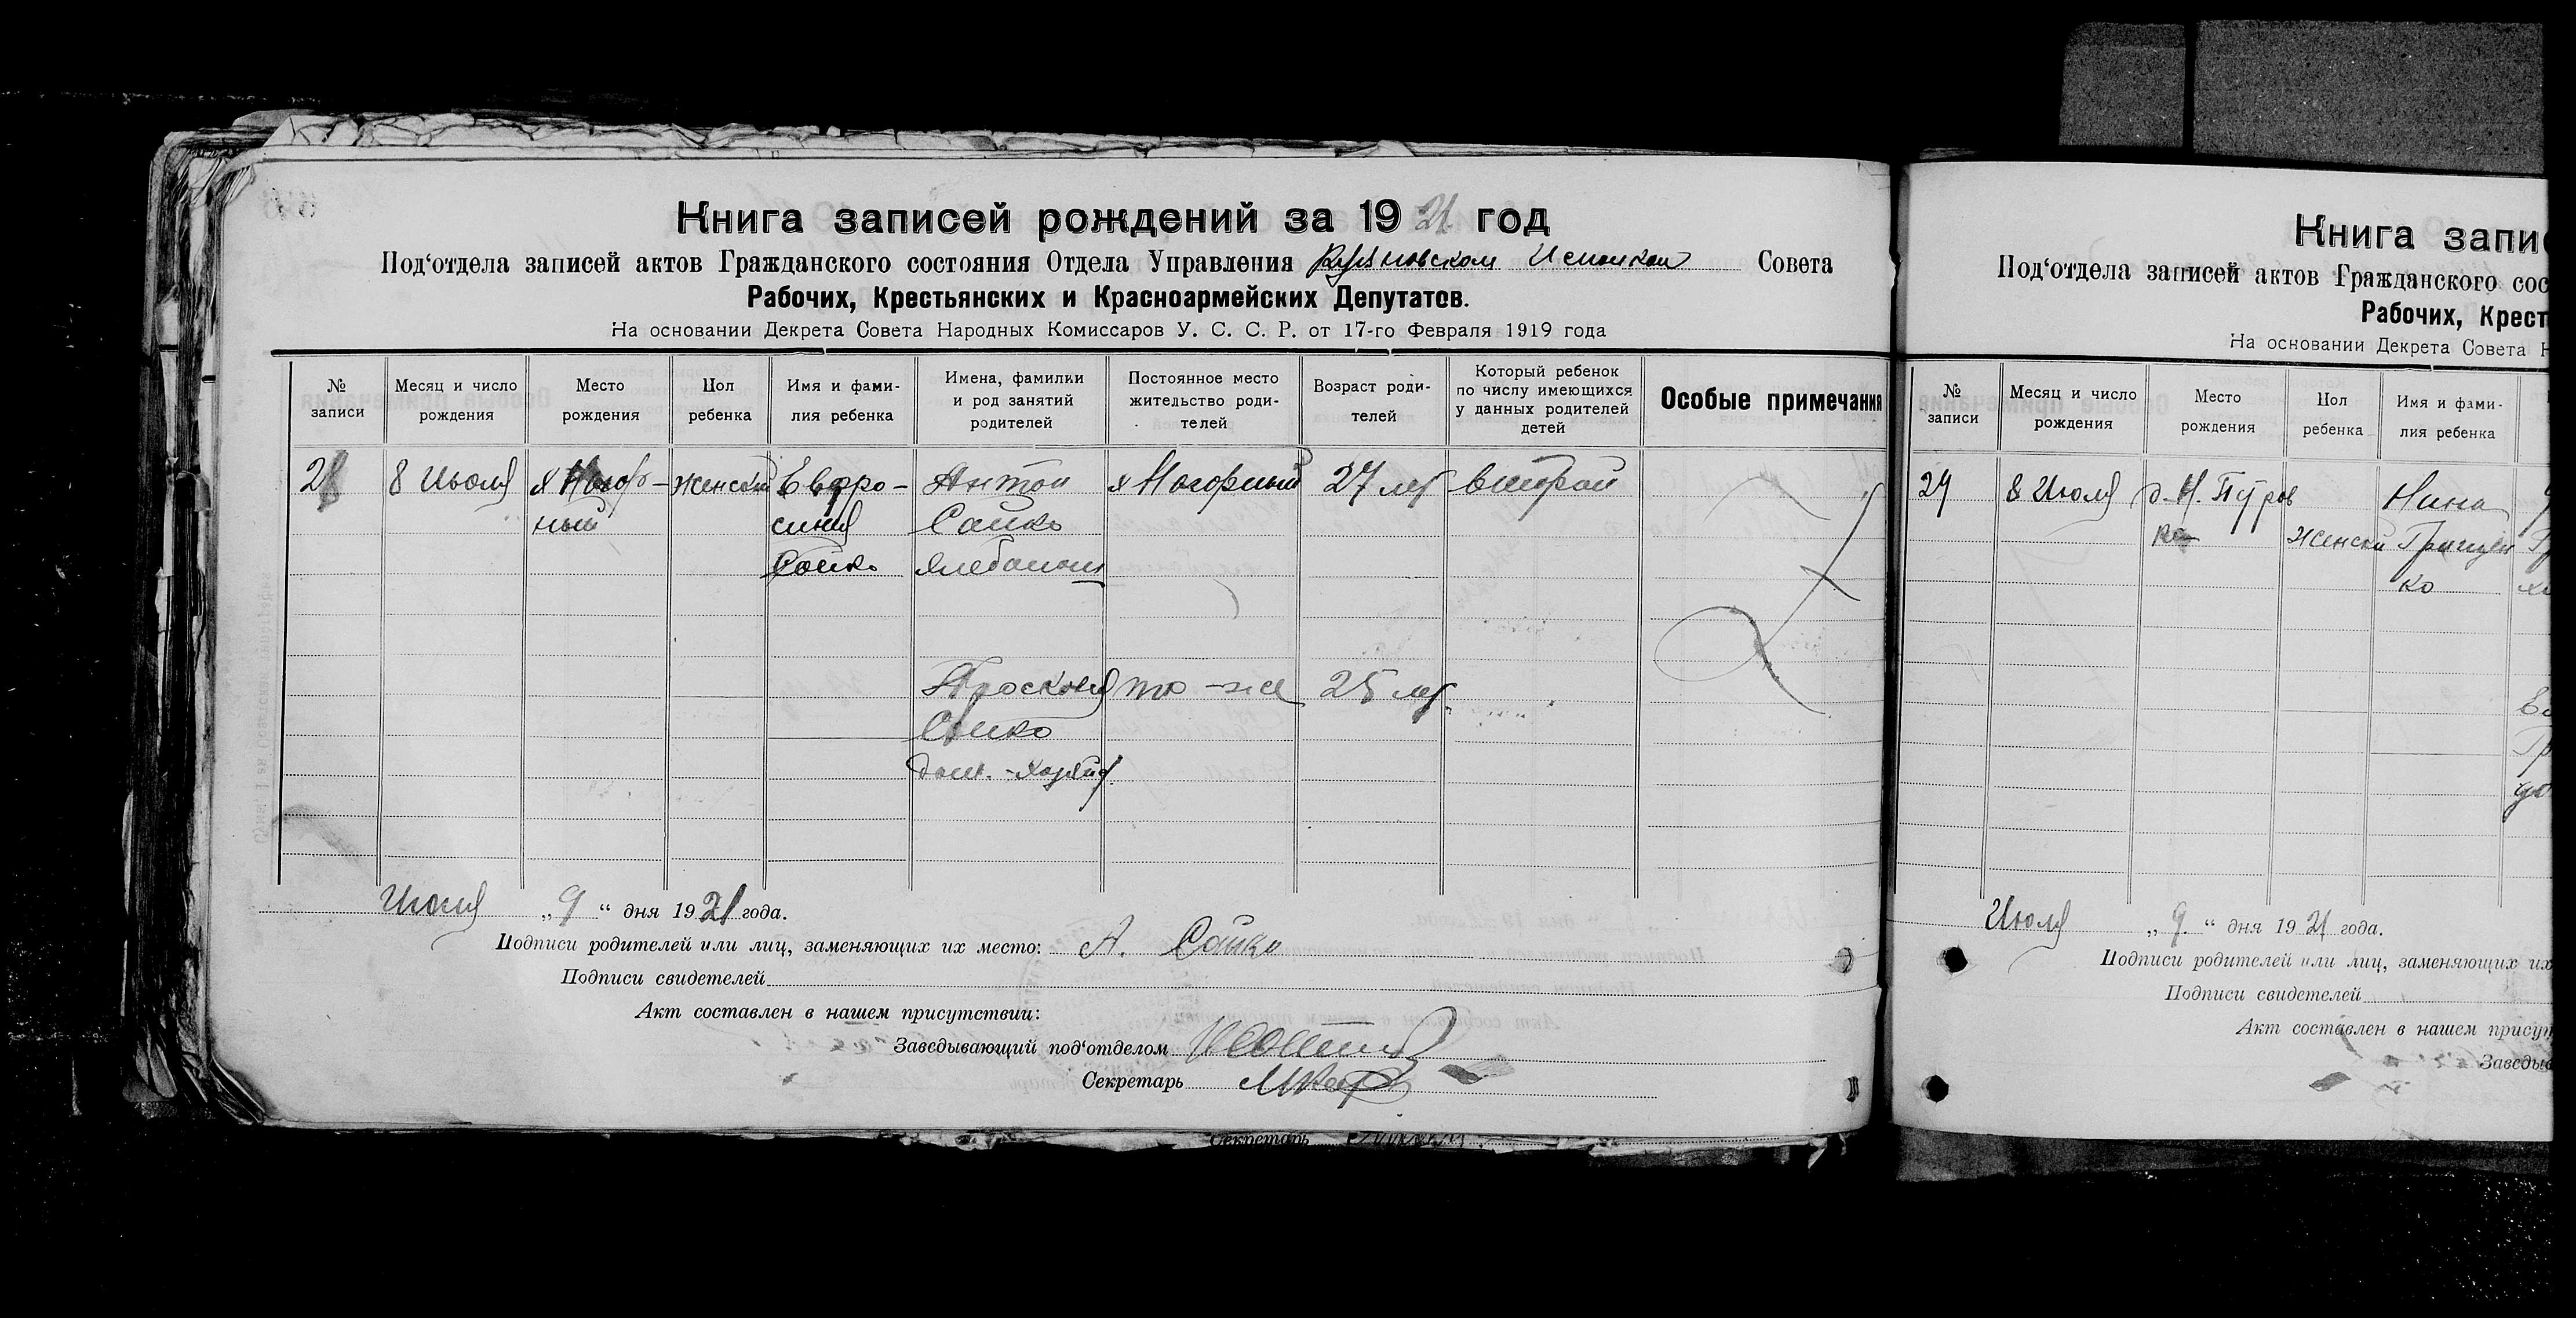 Книга записей рождений за 1921 год
Под‘отдела записей актов Гражданского состояния Отдела Управления Совета
Рабочих, Крестьянских и Красноармейских Депутатов.
На основании Декрета Совета Народных Комиссаров У. С. С. Р. от 17-го Февраля 1919 года
№ записи
Месяц и число рождения
Место рождения
Пол ребенка
Имя и фами-
лия ребенка
Имена, фамилии
и род занятий
родителей
Постоянное место
жительство роди-
телей
Возраст роди-
телей
Который ребенок
по числу имеющихся
у данных родителей
детей
Особые примечания
8 Июля женский Евфро- Антон х Нагорный 27 лет второй
ный синия Сайко
Сайко хлебопаш
Просковия то-же 25 лет
Сайко
дом.-хозяйк.
Июля „9“ дня 1921 года.
Подписи родителей или лиц, заменяющих их место: А. Сайко
Подписи свидетелей
Акт составлен в нашем присутствии:
Заведывающий под‘отделом
Секретарь
Секретарь
Книга запис
Под‘отдела записей актов Гражданского сос
Рабочих, Крест
На основании Декрета Совета Н
№ записи
Месяц и число рождения
Место рождения
Пол ребенка
Имя и фами-
лия ребенка
8 Июля Нина
женский Грицен
ко
Июля „9.“ дня 1921 года.
Подписи родителей или лиц, заменяющих их
Подписи свидетелей
Акт составлен в нашем присут
Заведыв